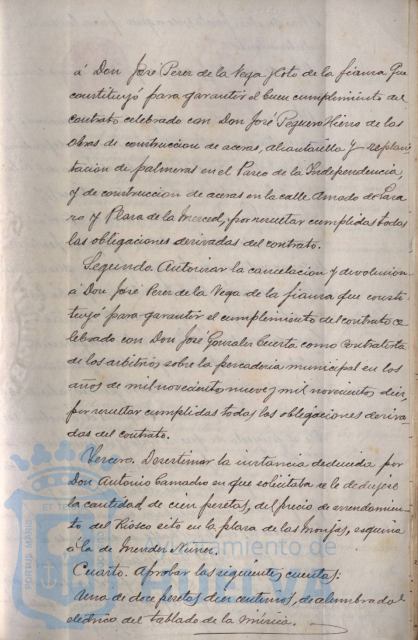 á Don José Perez de la Vega y Soto de la fianza que
constituyó para garantir el buen cumplimiento del
contrato celebrado con Don José Peguero de las
obras de construccion de aceras, alcantarilla y replan
tacion de palmeras en el Paseo de la Independencia,
y de construccion de aceras en la calle Amado de Laza
ro y Plaza de la Merced, por resultar cumplidas todas
las obligaciones derivadas del contrato.
Segundo. Autorizar la cancelacion y devolucion
á Don José Perez de la Vega de la fianza que consti
tuyó para garantir el cumplimiento del contrato ce
lebrado con Don José Gonzalez Cuerta como contratista
de los arbitrios sobre la pescaderia municipal en los
años de mil novecientos nueve y mil novecientos diez,
por resultar cumplidas todas las obligaciones deriva
das del contrato.
Tercero. Desestimar la instancia deducida por
Don Antonio Camacho en que solicitaba se le dedujese
la cantidad de cien pesetas, del precio de arrendamien
to del Kiosco sito en la plaza de las Monjas, esquina
á la de Mendez Nuñez.
Cuarto. Aprobar las siguientes cuentas:
Una de doce pesetas diez centimos, de alumbrado
eléctrico del tablado de la música.
Ayuntamiento de
PORTUS MARIS ET